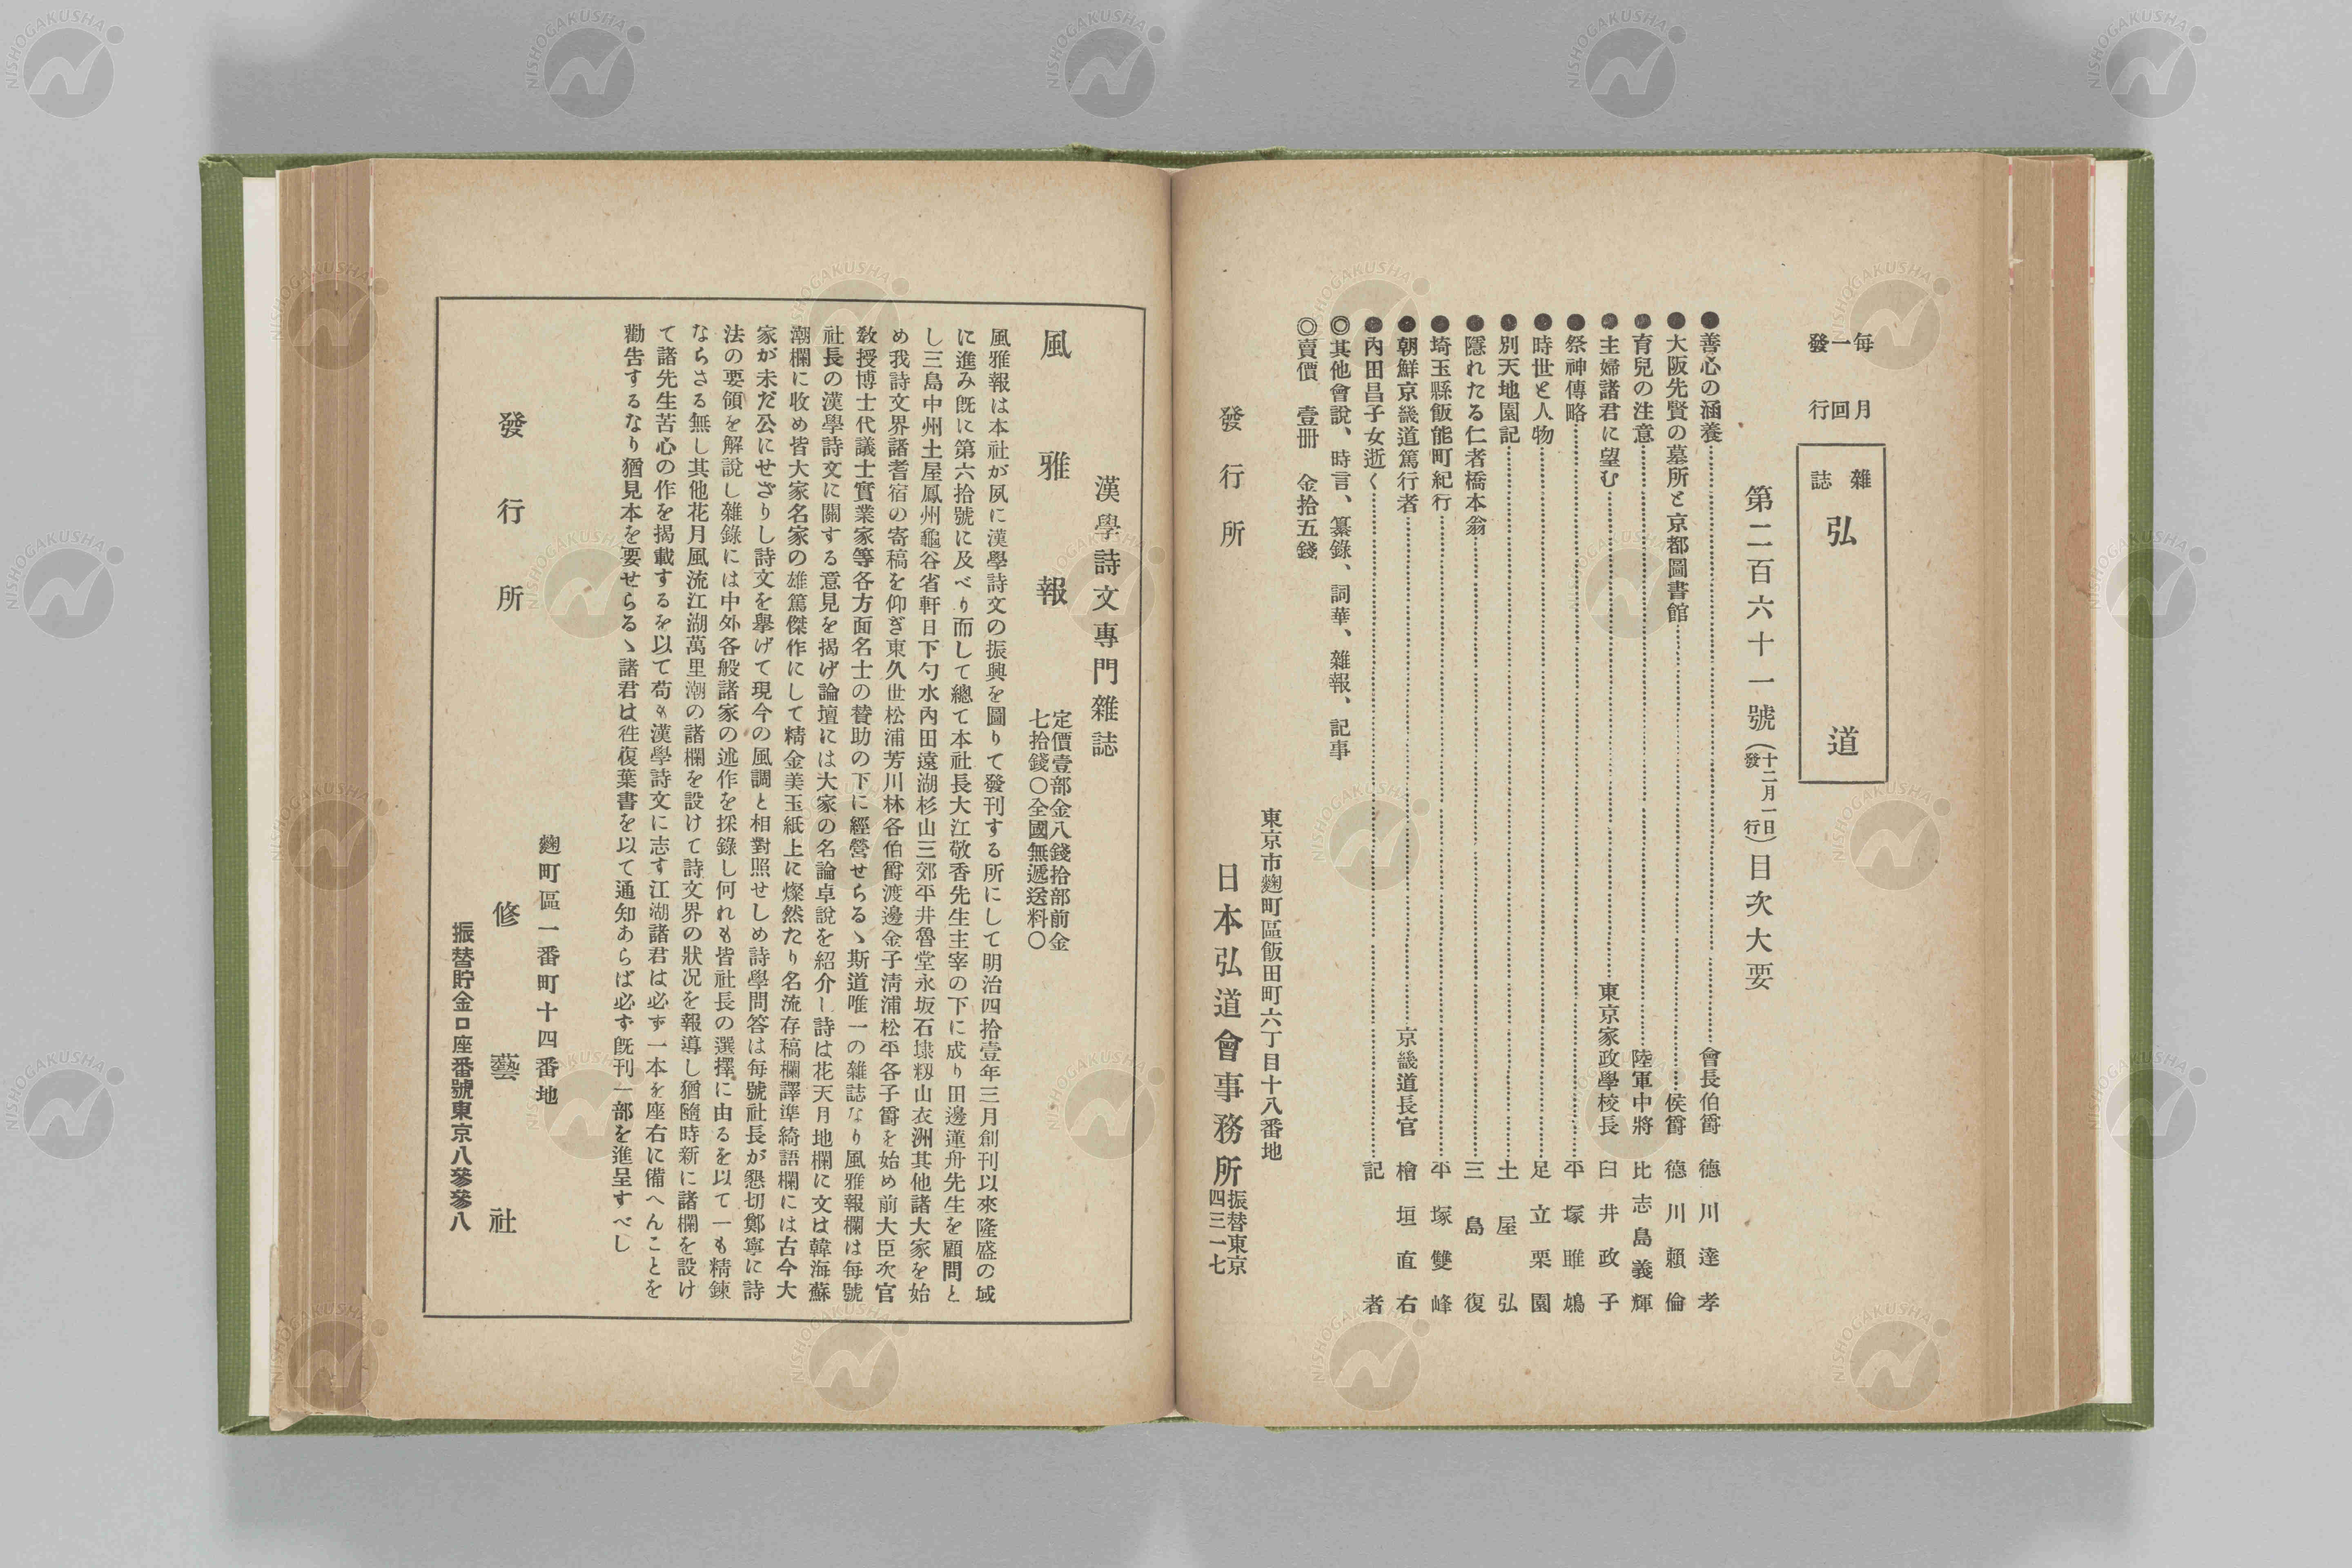 每月一回發行
雜誌 弘道
第二百六十一號(十二月一日發行)目次大要
●善心の涵養 會長伯爵 德川達孝
●大阪先賢の墓所と京都圖書館 侯爵 德川賴倫
●育兒の注意 陸軍中將 比志島義輝
●主婦諸君に望む 東京家政學校長 臼井政子
●祭神傳略 平塚雎鳩
●時世と人物 足立栗園
●別天地園記 土屋弘
●隱れたる仁者橋本翁 三島復
●埼玉縣飯能町紀行 平塚雙峰
●朝鮮京畿道篤行者 京畿道長官 檜垣直右
●內田昌子女逝く 記者
◎其他會說、時言、纂錄、詞華、雜報、記事
◎賣價 壹冊 金拾五錢
東京市麴町區飯田町六丁目十八番地
發行所 日本弘道會事務所 振替東京四三一七
漢學詩文專門雜誌
風雅報 定價壹部金八錢拾部前金七拾錢〇全國無遞送料〇
風雅報は本社が夙に漢學詩文の振興を圖りて發刊する所にして明治四拾壹年三月創刊以來隆盛の域
に進み既に第六拾號に及べり而して總て本社長大江敬香先生主宰の下に成り田邊蓮舟先生を顧問と
し三島中州土屋鳳州龜谷省軒日下勺水內田遠湖杉山三郊平井魯堂永坂石埭籾山衣洲其他諸大家を始
め我詩文界諸耆宿の寄稿を仰ぎ東久世松浦芳川林各伯爵渡邊金子淸浦松平各子爵を始め前大臣次官
敎授博士代議士實業家等各方面名士の贊助の下に經營せらるゝ斯道唯一の雜誌なり風雅報欄は每號
社長の漢學詩文に關する意見を揭げ論壇には大家の名論卓說を紹介し詩は花天月地欄に文は韓海蘇
潮欄に收め皆大家名家の雄篤傑作にして精金美玉紙上に燦然たり名流存稿欄譯準綺語欄には古今大
家が未だ公にせざりし詩文を擧げて現今の風調と相對照せしめ詩學問答は每號社長が懇切鄭寧に詩
法の要領を解說し雜錄には中外各般諸家の述作を採錄し何れも皆社長の選擇に由るを以て一も精鍊
ならさる無し其他花月風流江湖萬里潮の諸欄を設けて詩文界の狀況を報導し猶隨時新に諸欄を設け
て諸先生苦心の作を揭載するを以て苟も漢學詩文に志す江湖諸君は必ず一本を座右に備へんことを
勸告するなり猶見本を要せらるゝ諸君は徃復葉書を以て通知あらば必ず既刊一部を進呈すべし
麴町區一番町十四番地
發行所 修藝社
振替貯金口座番號東京八參參八
NISHOGAKUSHA